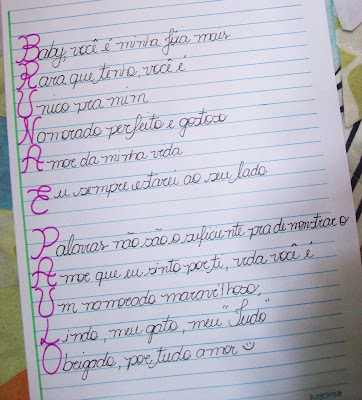 Baby, você é minha jóia mais
Rara que tenho, você é
Unico pra mim
Namorado perfeito e gostoso
Amor da minha vida
Eu sempre estarei ao seu lado
Palavras não são o suficiente pra demonstrar o
Amor que eu sinto por ti, vida você é
Um namorado maravilhoso,
Lindo, meu gato, meu "Tudo"
Obrigado, por tudo amor
kajoma